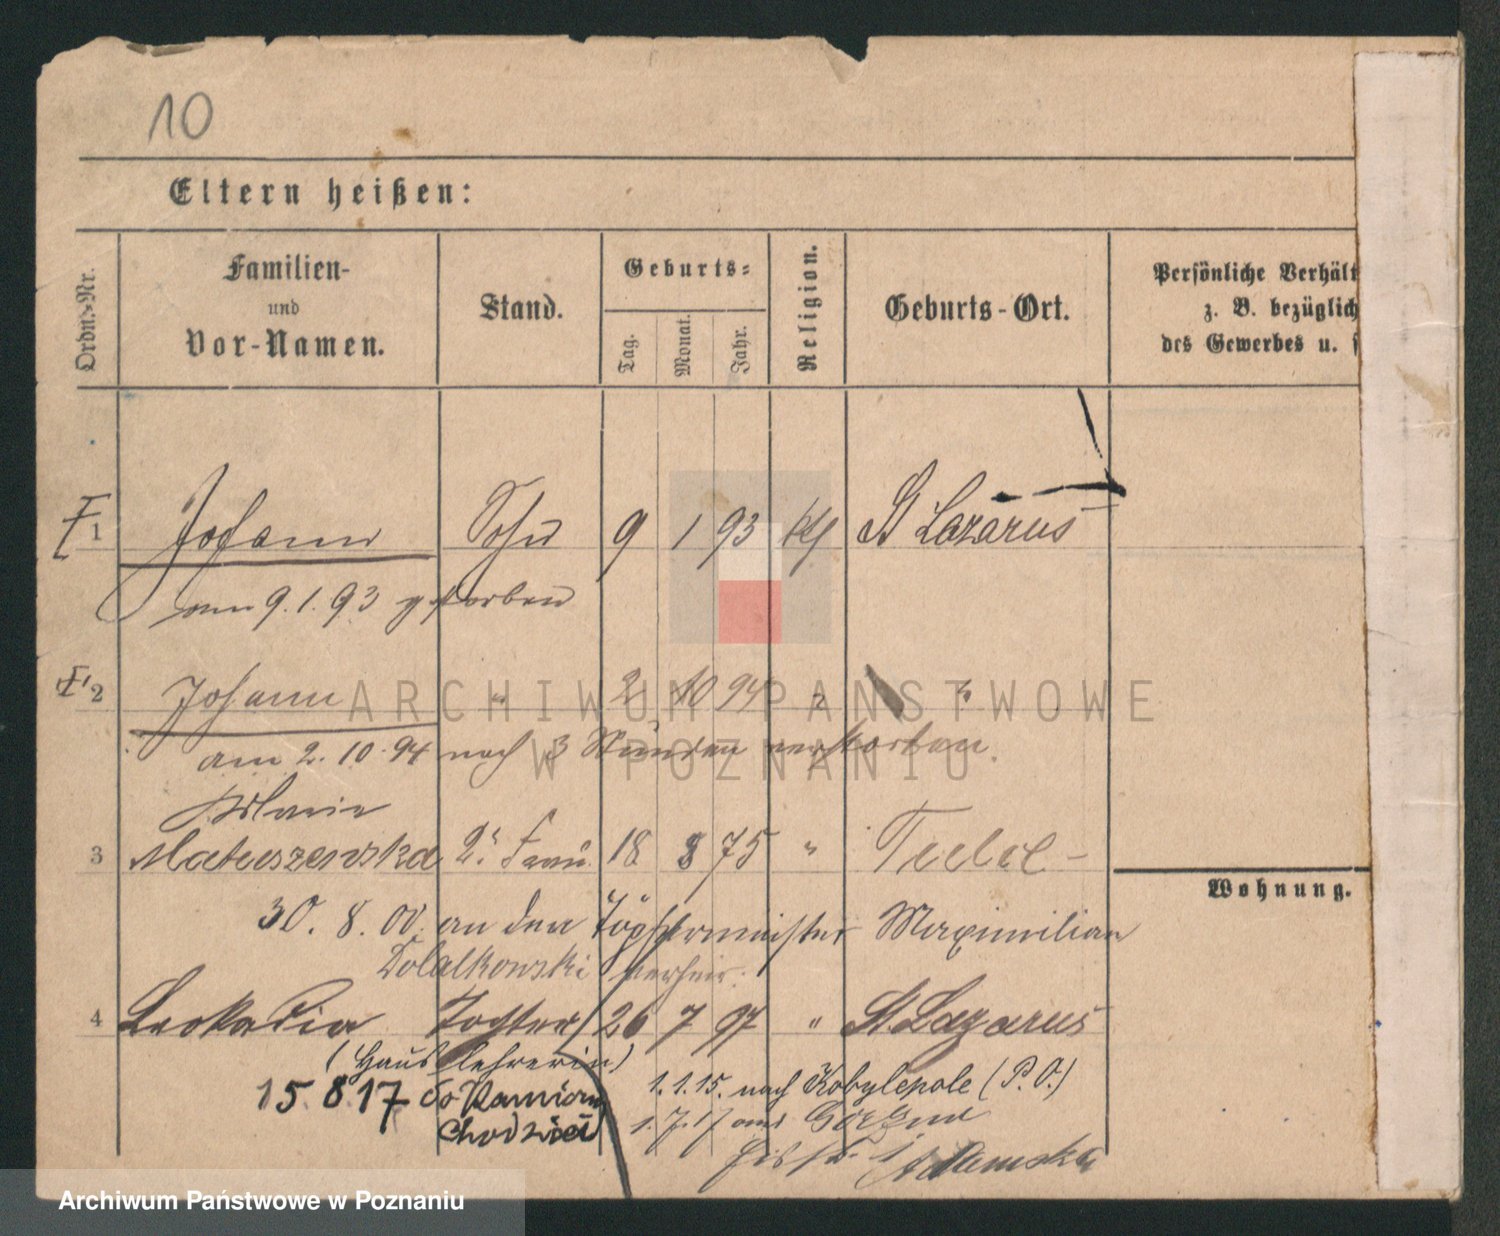 10
Eltern heißen:
Ordn.-Nr.
Familien-
und
Vor-Namen.
Stand.
Geburts-
Tag.
Monat.
Jahr.
Religion.
Geburts-Ort.
Persönliche Verhält
z. B. bezüglich
des Gewerbes u.
1 Johann Sohn 9 1 93 kth St Lazarus
am 9. 1. 93 gestorben
2 Johann " 2 10 94 " "
am 2. 10. 94 nach 3 Stunden verstorben.
Marie
3 Matuszewska 2. Frau 18 8 75 "
Wohnung.
30. 8. 00. an den Töpfermeister Maximilian
Dolalkowski verheir.
4 Leokadia Tochter 26 7 97 " St. Lazarus
(Hauslehrerin)
1. 1. 15. nach Kobylepole (P. O.)
15 8 17 do
1. 7. 17 aus
ARCHIWUM PAŃSTWOWE
W POZNANIU
Archiwum Państwowe w Poznaniu